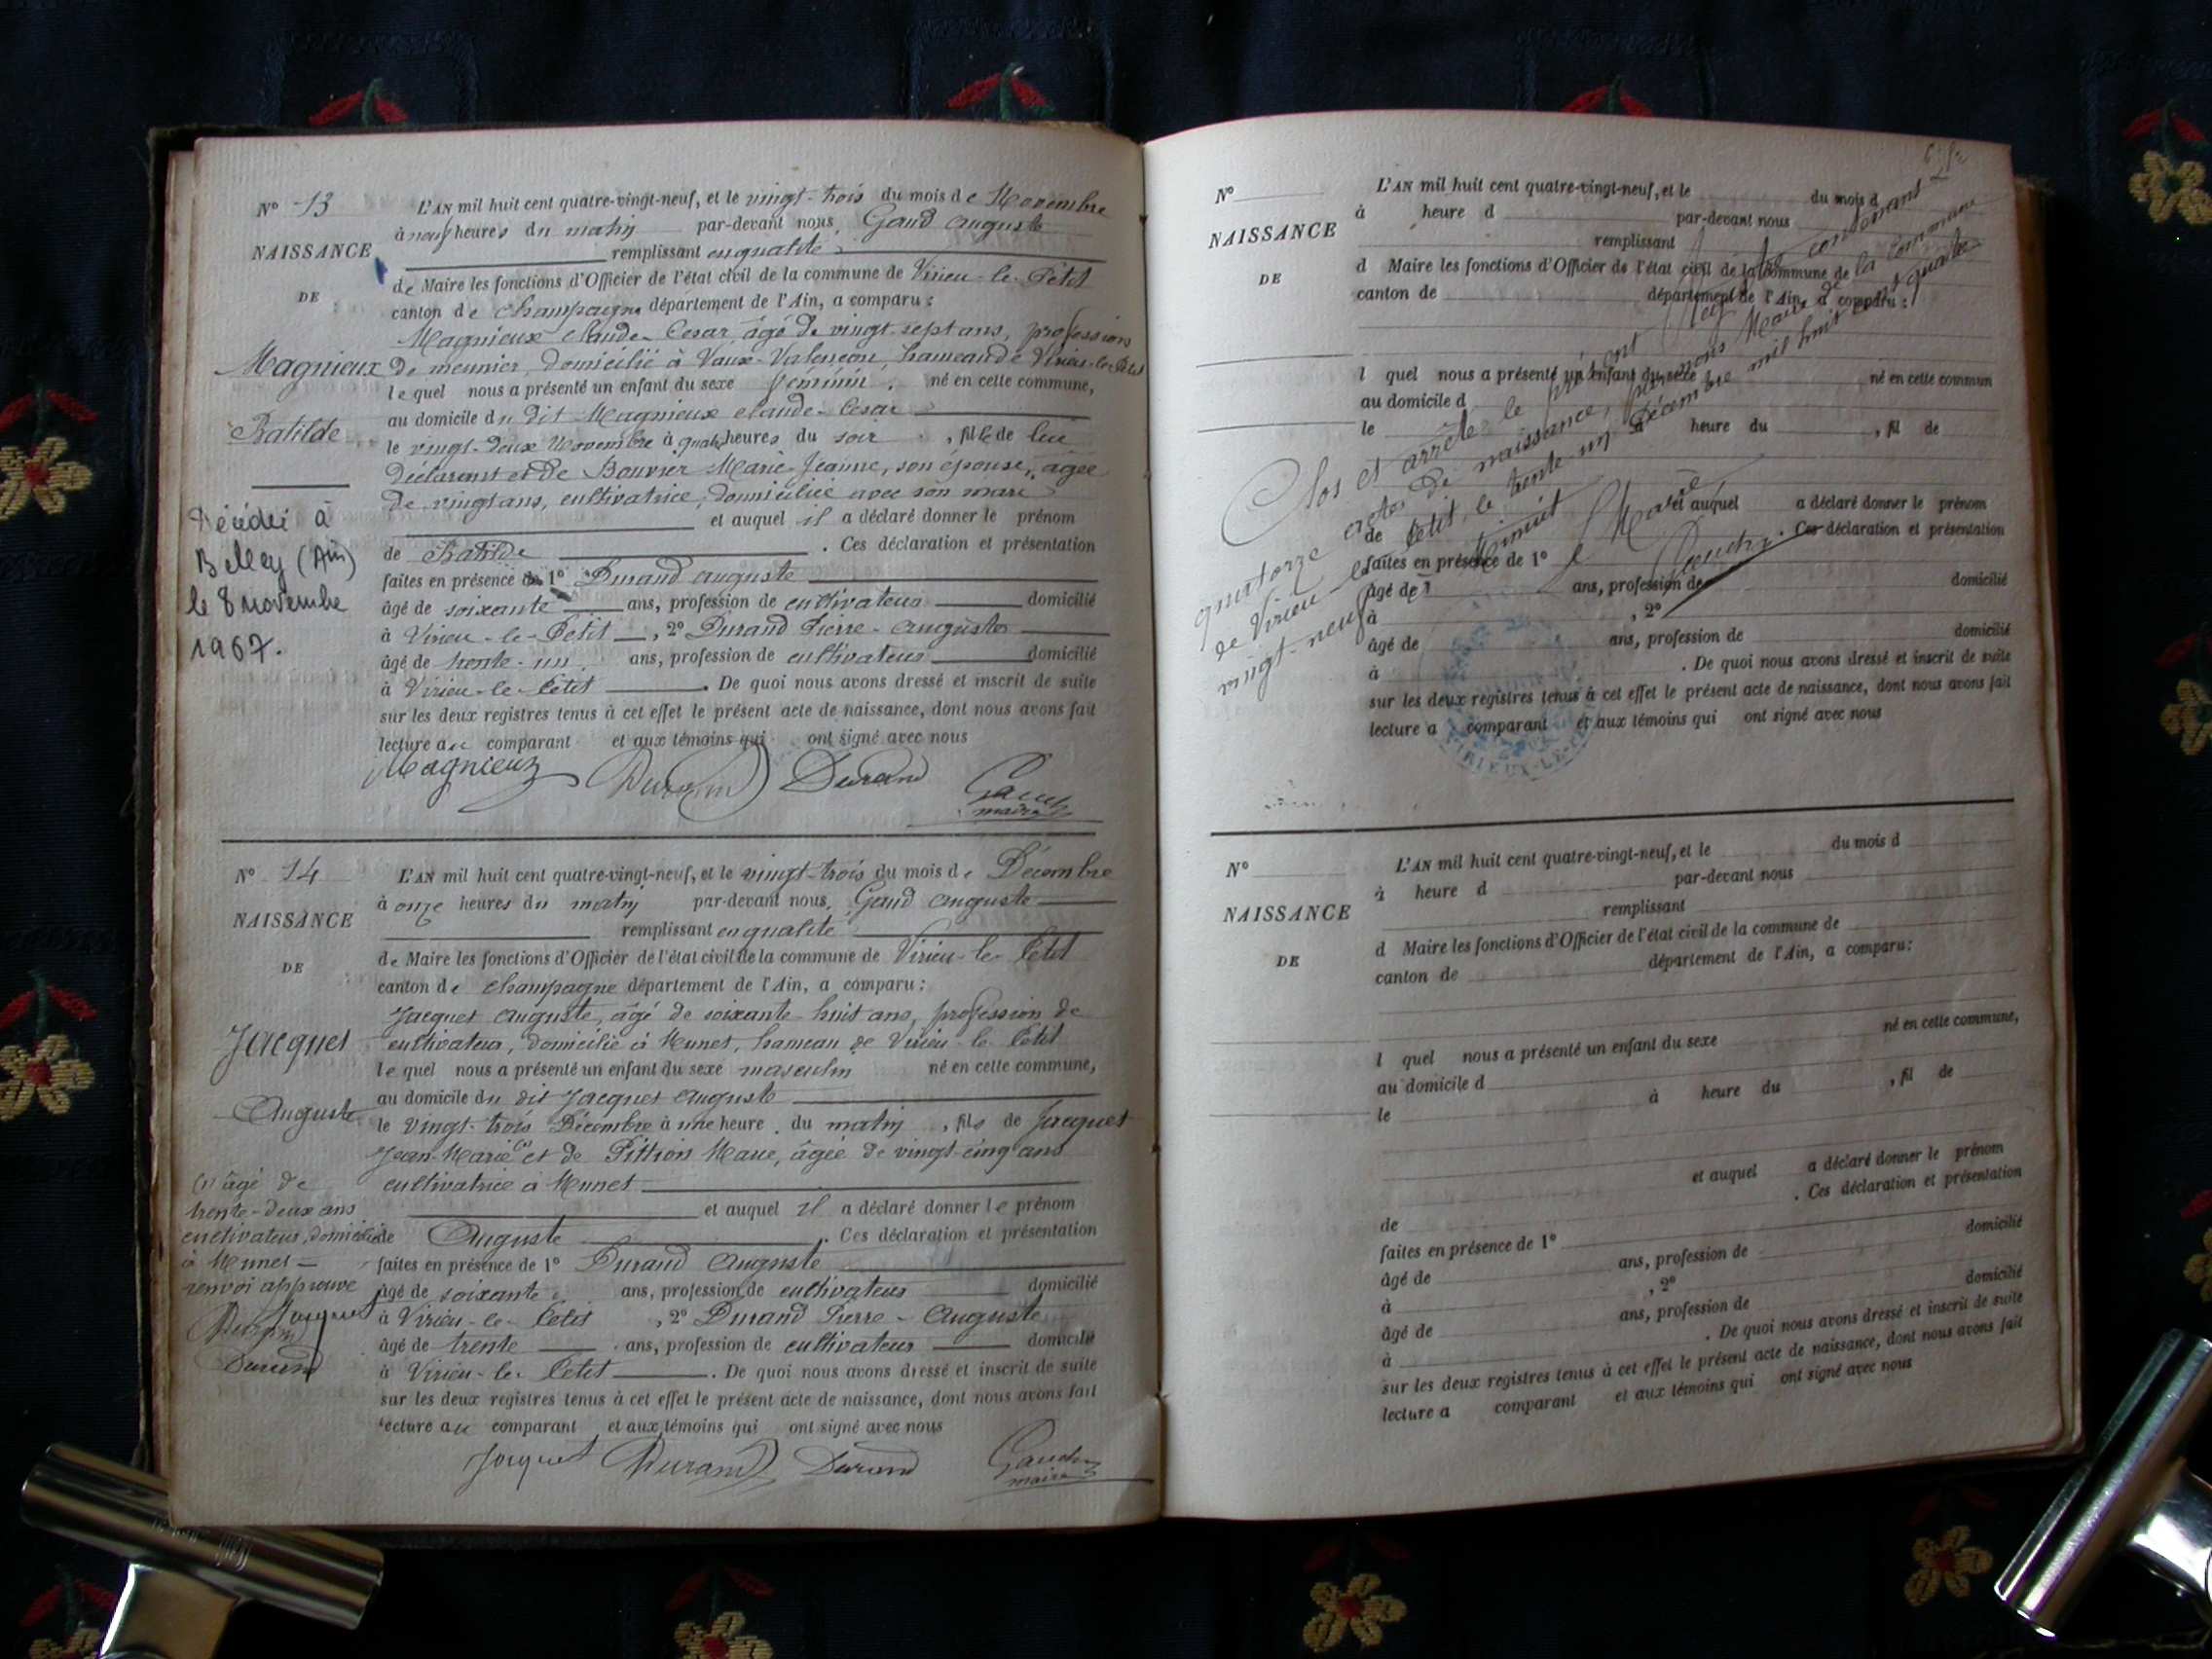 N° 13
NAISSANCE
DE
Magnieux
Batilde
Décédée à
Belley (Ain)
le 8 novembre
1967.
L'AN mil huit cent quatre-vingt-neuf, et le vingt-trois du mois de Novembre
à neuf heures du matin par-devant nous, Gaud Auguste
remplissant en qualité
de Maire les fonctions d'Officier de l'état civil de la commune de Virieu-le-Petit
canton de Champagne département de l'Ain, a comparu :
Magnieux Claude-Cesar, âgé de vingt-sept ans, profession
de meunier, domicilié à Vaux-Valençon, hameau de Virieu-le-Petit
lequel nous a présenté un enfant du sexe féminin, né en cette commune,
au domicile du dit Magnieux Claude-Cesar
le vingt-deux Novembre à quatre heures du soir, fille de lui
déclarant et de Bouvier Marie-Jeanne, son épouse, âgée
de vingt ans, cultivatrice, domiciliée avec son mari
et auquel il a déclaré donner le prénom
de Batilde. Ces déclaration et présentation
faites en présence de 1° Durand Auguste
âgé de soixante ans, profession de cultivateur domicilié
à Virieu-le-Petit, 2° Durand Pierre-Auguste
âgé de trente-un ans, profession de cultivateur domicilié
à Virieu-le-Petit. De quoi nous avons dressé et inscrit de suite
sur les deux registres tenus à cet effet le présent acte de naissance, dont nous avons fait
lecture au comparant et aux témoins qui ont signé avec nous
Magnieux Durand Durand Gaud
maire
N° 14
NAISSANCE
DE
Jacquet
Auguste
(1) âgé de
trente-deux ans
cultivateur, domicilié
à Munet
renvoi approuvé
Jacquet
Durand
Durand
L'AN mil huit cent quatre-vingt-neuf, et le vingt-trois du mois de Décembre
à onze heures du matin par-devant nous, Gaud Auguste
remplissant en qualité
de Maire les fonctions d'Officier de l'état civil de la commune de Virieu-le-Petit
canton de Champagne département de l'Ain, a comparu :
Jacquet Auguste, âgé de soixante-huit ans, profession de
cultivateur, domicilié à Munet, hameau de Virieu-le-Petit
lequel nous a présenté un enfant du sexe masculin né en cette commune,
au domicile du dit Jacquet Auguste
le vingt-trois Décembre à une heure du matin, fils de Jacquet
Jean-Marie (1) et de Pittion Marie, âgée de vingt-cinq ans
cultivatrice à Munet
et auquel il a déclaré donner le prénom
de Auguste. Ces déclaration et présentation
faites en présence de 1° Durand Auguste
âgé de soixante ans, profession de cultivateur domicilié
à Virieu-le-Petit, 2° Durand Pierre-Auguste
âgé de trente ans, profession de cultivateur domicilié
à Virieu-le-Petit. De quoi nous avons dressé et inscrit de suite
sur les deux registres tenus à cet effet le présent acte de naissance, dont nous avons fait
lecture au comparant et aux témoins qui ont signé avec nous
Jacquet Durand Durand Gaud
maire
N°
NAISSANCE
DE
L'AN mil huit cent quatre-vingt-neuf, et le du mois d
à heure d par-devant nous
remplissant
d Maire les fonctions d'Officier de l'état civil de la commune de
canton de département de l'Ain, a comparu :
l quel nous a présenté un enfant du sexe né en cette commun
au domicile d
le à heure du , fil de
et auquel a déclaré donner le prénom
de . Ces déclaration et présentation
faites en présence de 1°
âgé de ans, profession de domicilié
à , 2°
âgé de ans, profession de domicilié
à . De quoi nous avons dressé et inscrit de suite
sur les deux registres tenus à cet effet le présent acte de naissance, dont nous avons fait
lecture a comparant et aux témoins qui ont signé avec nous
Clos et arrêté le présent contenant
quatorze actes de naissance, par nous Maire de la commune
de Virieu-le-Petit, le trente-un Décembre mil huit cent quatre
vingt-neuf
Minuit
Le Maire
VIRIEU-LE-
N°
NAISSANCE
DE
L'AN mil huit cent quatre-vingt-neuf, et le du mois d
à heure d par-devant nous
remplissant
d Maire les fonctions d'Officier de l'état civil de la commune de
canton de département de l'Ain, a comparu :
l quel nous a présenté un enfant du sexe né en cette commune,
au domicile d
le à heure du , fil de
et auquel a déclaré donner le prénom
de . Ces déclaration et présentation
faites en présence de 1°
âgé de ans, profession de domicilié
à , 2°
âgé de ans, profession de domicilié
à . De quoi nous avons dressé et inscrit de suite
sur les deux registres tenus à cet effet le présent acte de naissance, dont nous avons fait
lecture a comparant et aux témoins qui ont signé avec nous